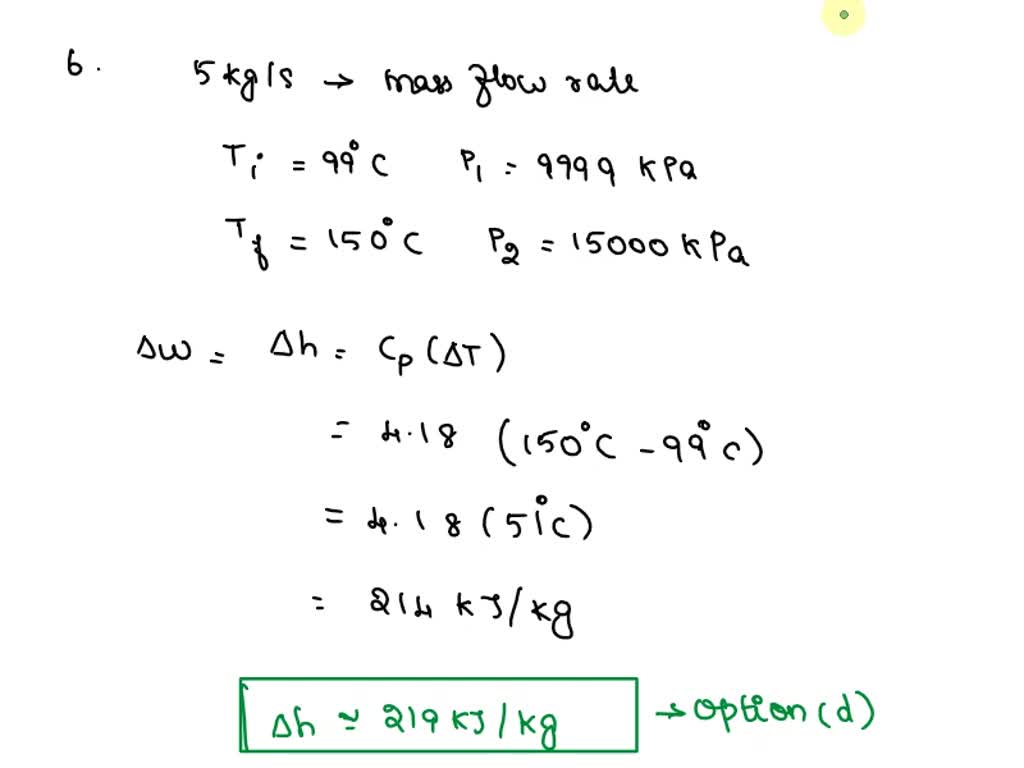 6.
5 kg/s → mass flow rate
Ti = 99°C P1 = 9999 kPa
Tf = 150°C P2 = 15000 kPa
Δw = Δh = Cp (ΔT)
= 4.18 (150°C - 99°C)
= 4.18 (51°C)
= 214 kJ/kg
Δh ≈ 219 kJ/kg → option (d)